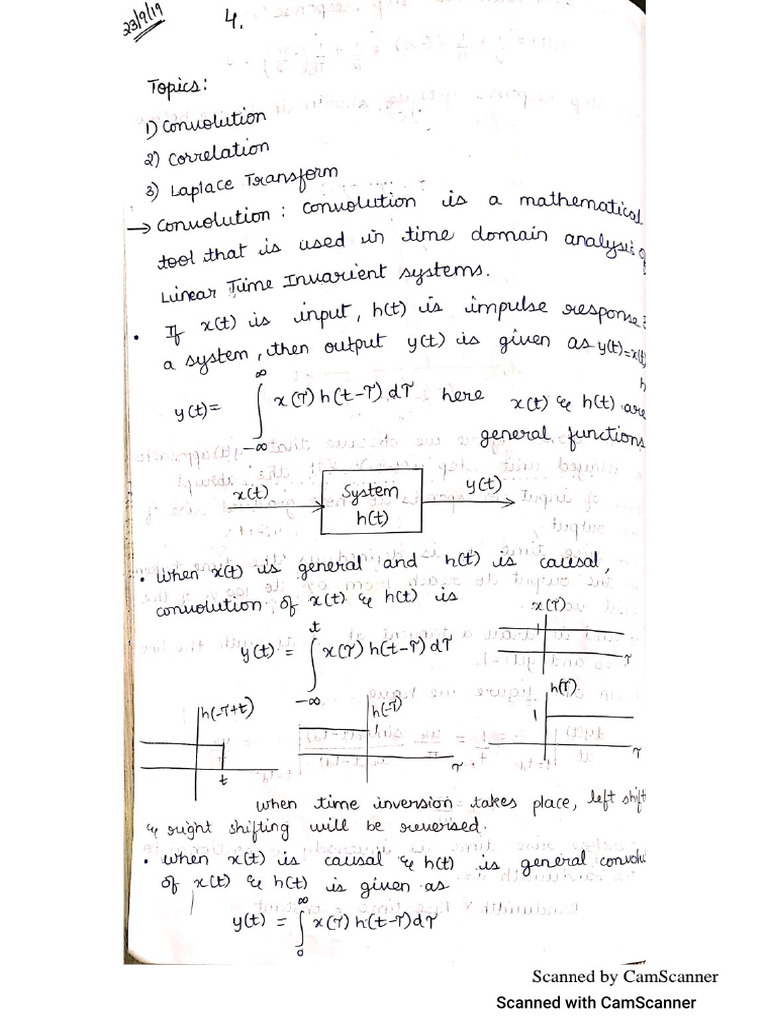 23/9/19
4.
Topics:
1) Convolution
2) Correlation
3) Laplace Transform
→ Convolution : Convolution is a mathematical
tool that is used in time domain analysis of
Linear Time Invarient systems.
• If x(t) is input, h(t) is impulse response
a system, then output y(t) is given as y(t)=x(t)
h
y(t)= ∫_{-∞}^{∞} x(τ) h(t-τ) dτ here x(t) & h(t) are
general functions
x(t) System y(t)
h(t)
• when x(t) is general and h(t) is causal,
convolution of x(t) & h(t) is
y(t) = ∫_{-∞}^{t} x(τ) h(t-τ) dτ
x(τ)
1
τ
h(-τ+t)
t
h(-τ)
1
τ
h(τ)
1
τ
when time inversion takes place, left shift
& right shifting will be reversed.
• when x(t) is causal & h(t) is general convolu
of x(t) & h(t) is given as
y(t) = ∫_{0}^{∞} x(τ) h(t-τ) dτ
Scanned by CamScanner
Scanned with CamScanner